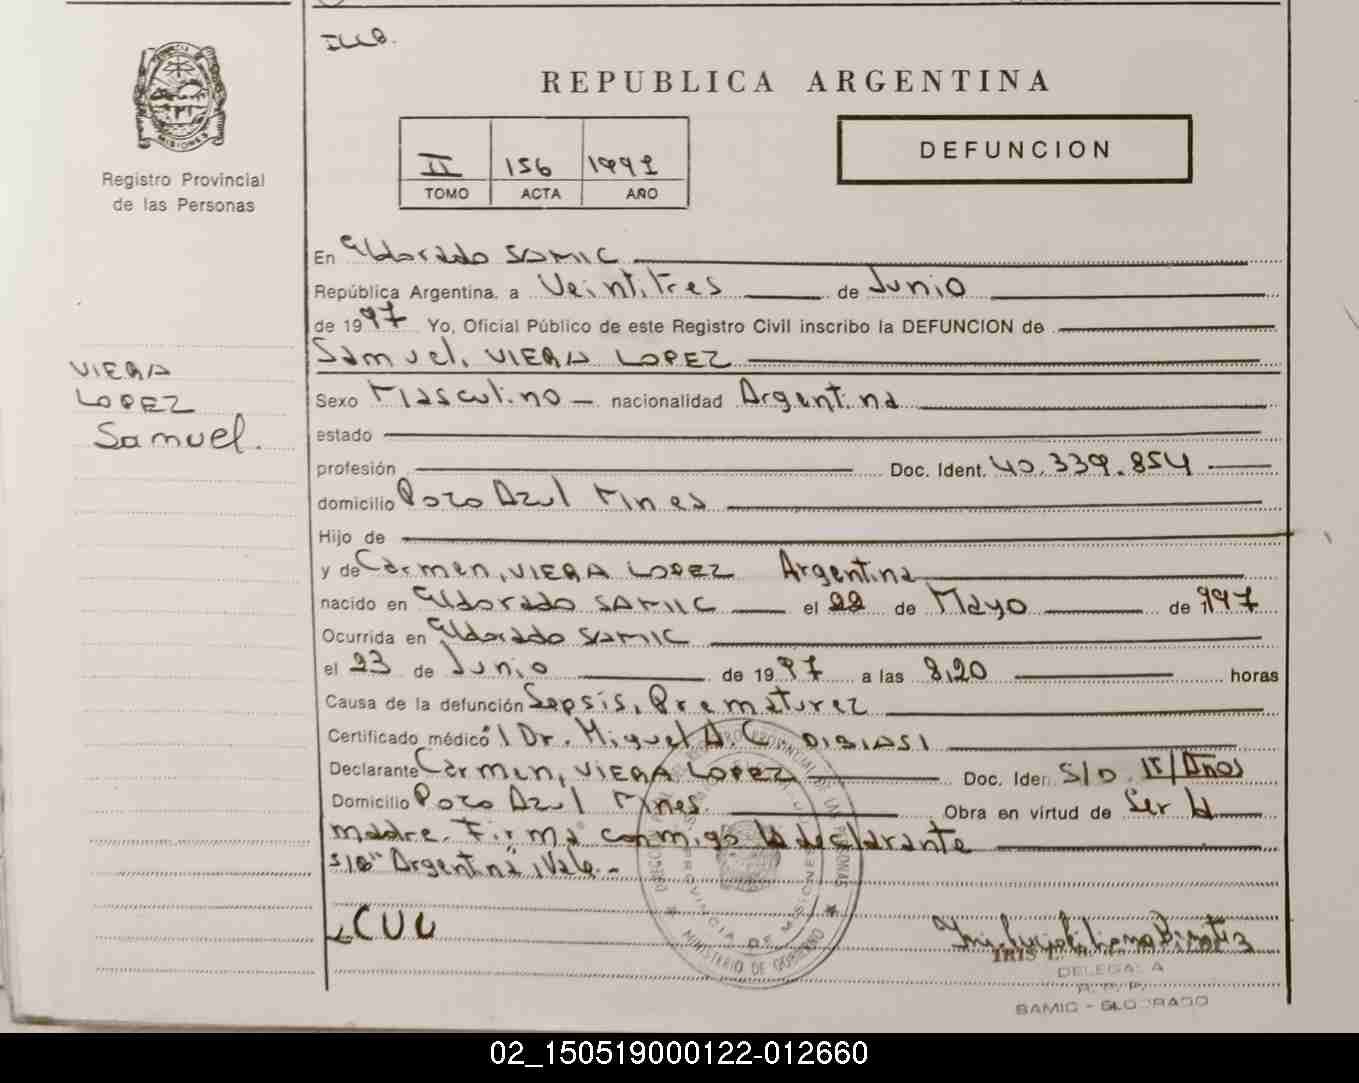 REPUBLICA ARGENTINA
MISIONES
Registro Provincial
de las Personas
II 156 1997
TOMO ACTA AÑO
DEFUNCION
En Eldorado SAMIC
República Argentina, a Veintitres de Junio
de 1997 Yo, Oficial Público de este Registro Civil inscribo la DEFUNCION de
Samuel, VIERA LOPEZ
VIERA
LOPEZ
Samuel.
Sexo Masculino - nacionalidad Argentina
estado
profesión Doc. Ident. 40.339.854
domicilio Pozo Azul Mnes
Hijo de
y de Carmen, VIERA LOPEZ Argentina
nacido en Eldorado SAMIC el 22 de Mayo de 997
Ocurrida en Eldorado SAMIC
el 23 de Junio de 1997 a las 8,20 horas
Causa de la defunción Sepsis, Prematurez
Certificado médico Dr. Miguel A. C. DIBIASI
Declarante Carmen, VIERA LOPEZ Doc. Iden S/D 15/Años
Domicilio Pozo Azul Mnes. Obra en virtud de Ser la
madre. Firma conmigo la declarante
s/b "Argentina" Vale.-
CUL
MINISTERIO DE GOBIERNO
PROVINCIA DE MISIONES
IRIS L.
DELEGADA
R. P. P.
SAMIC - ELDORADO
02_150519000122-012660